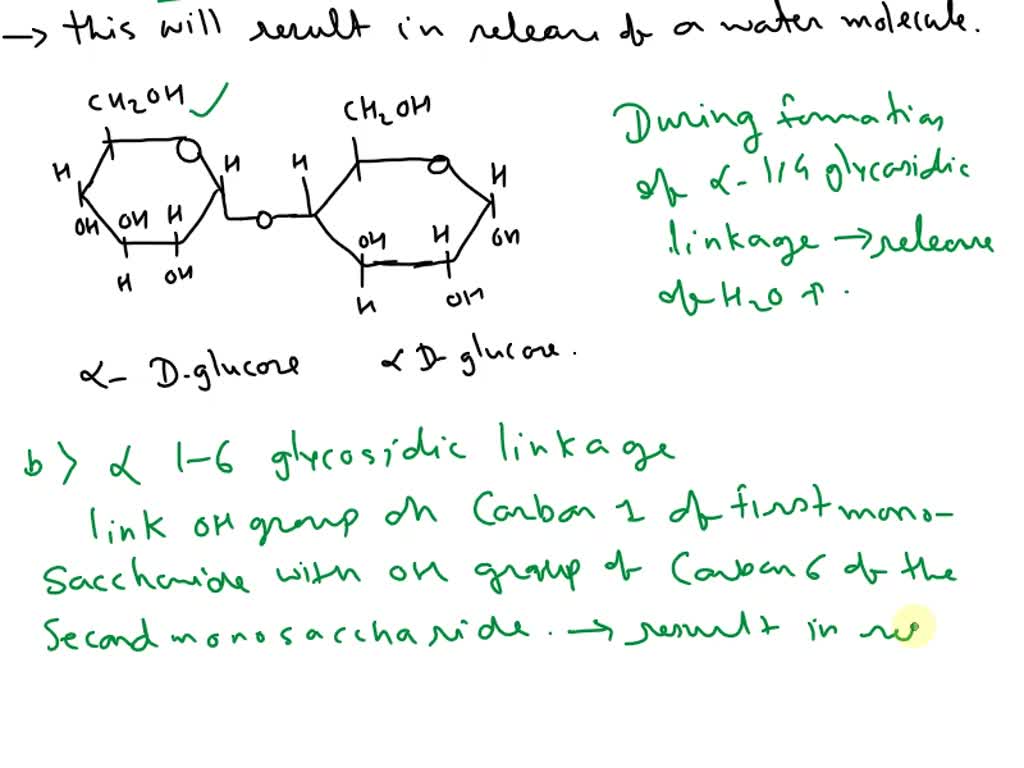 → this will result in release of a water molecule.
CH2OH ✓ CH2OH
During formation
of α-1,4 glycosidic
linkage → release
of H2O ↑.
O H H O H
H
OH OH H O OH H OH
H OH H OH
α- D-glucose α D-glucose.
b> α 1-6 glycosidic linkage
link OH group on Carbon 1 of first mono-
Saccharide with OH group of Carbon 6 of the
Second monosaccharide. → result in